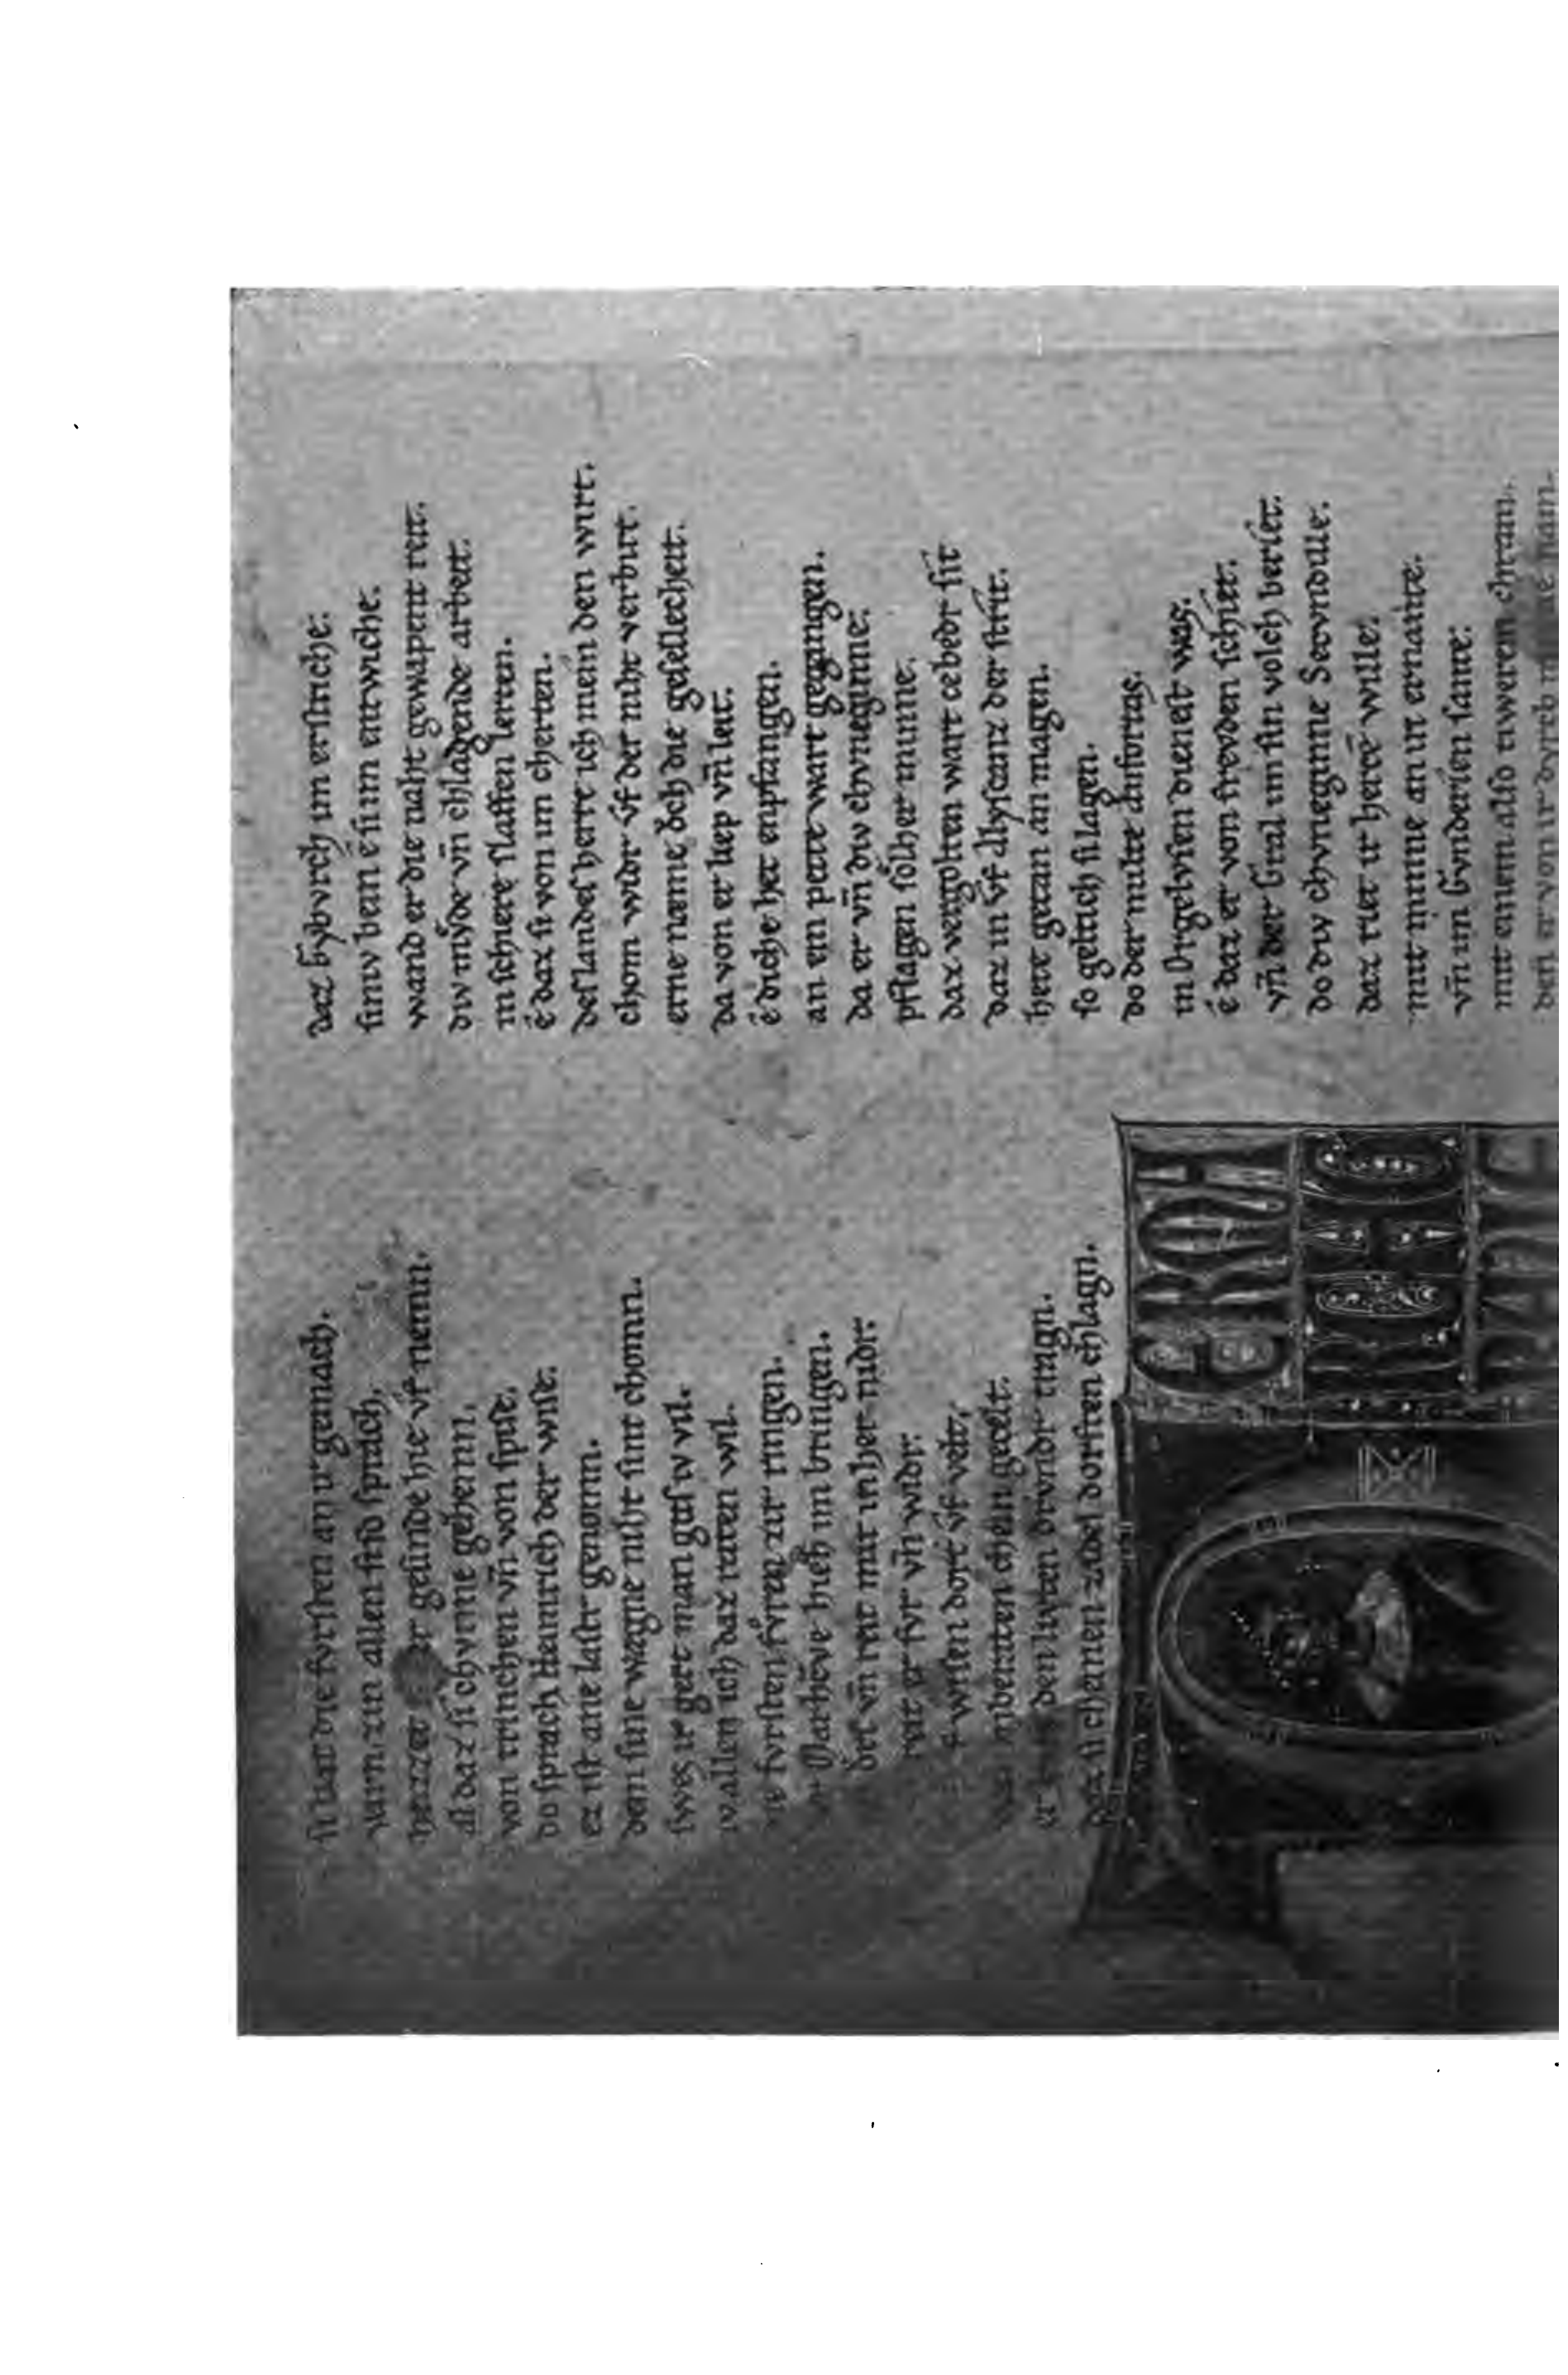 si bat die fvrsten an ir gemach.
zin allen sʒ sprach.
ir gesinde hie vf nemn.
al daz si chvnne gezhemn.
von trinchen vn̄ von spise.
do sprach Heinrich der wise.
ez ist ane laster genomn.
den sine wagne niht sint chomn.
swes ir gert man gus iv vil.
iv allen ich daz raten wil.
fvrsten fvrze zir ringen.
Matheve hiez im bringen.
vn̄ rait mit in her nidr.
er fvr vn̄ widr.
wisen dort vf velt.
gezelt.
den livten drvndr ringn.
si chemen zadel dorften chlagn.
GROZ
daz Gybvrch im erstriche.
siniv bein e si im entwiche.
wand er die naht gewapent reit.
div mvͦde vn̄ chlagende arbeit.
in schiere slaffen lerten.
e daz si von im cherten.
des landes herre ich mein den wirt.
chom widr vf der niht verbirt.
erne næme doch die gesellecheit.
da von er liep vn̄ leit.
e diche het enpfangen.
an ein pette wart gegangen.
da er vn̄ div chvneginne.
pflagen solher minne.
daz vergolten wart ze bedr sit
daz in vf Alyscanz der strit.
hete getan an magen.
so gelich si lagen.
do der milte Anfortas.
in Orgelvsen dienest was.
e daz er von frevden schiet.
vn̄ der Gral im sin volch beriet.
do div chvneginne Secvndille.
daz riet ir herce wille.
mit minne an in ernante.
vn̄ im Gvndrien sante.
mit einem also tiweren chram.
den er von ir dvrch minne nam.